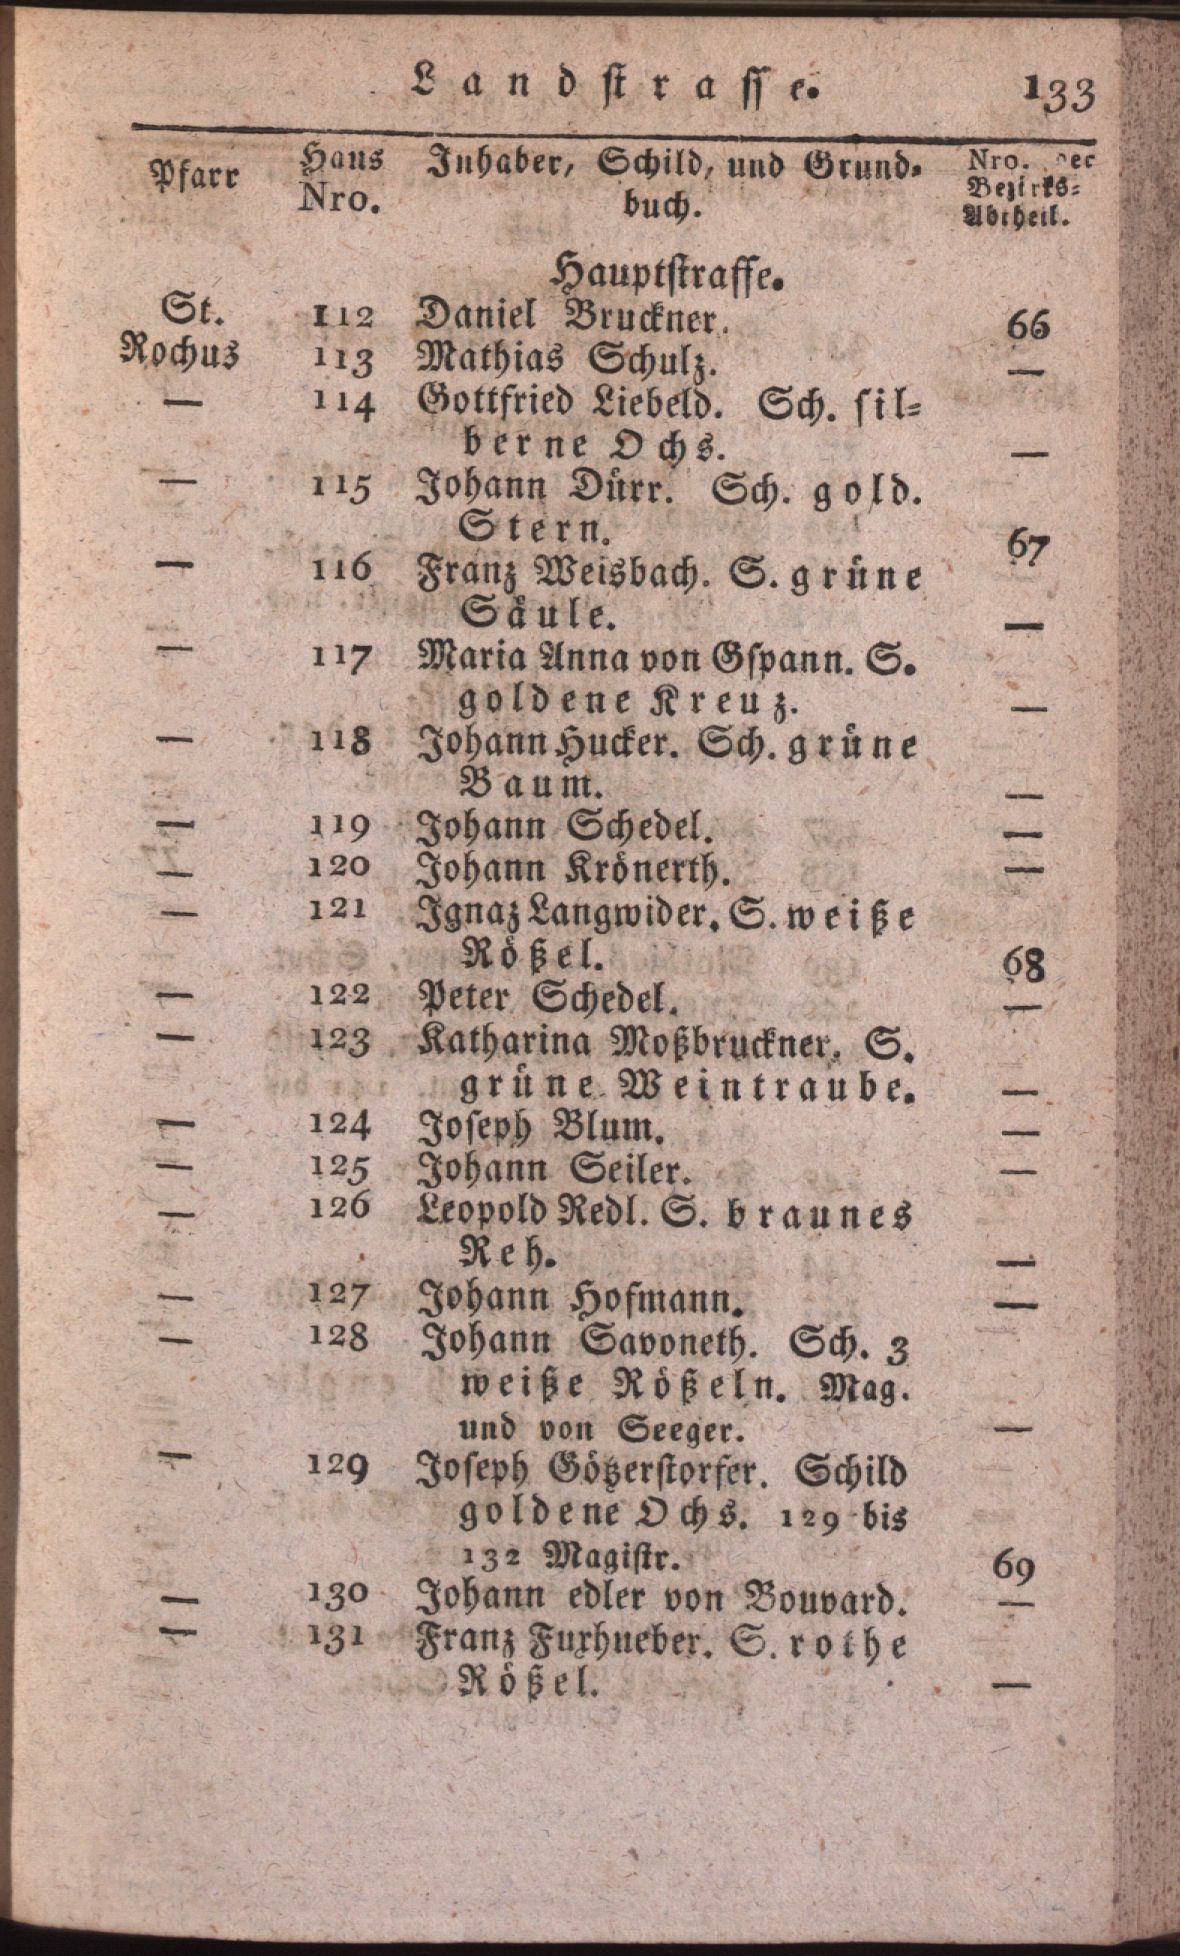 Landstrasse. 133
Pfarr Haus Nro. Inhaber, Schild, und Grund-buch. Nro. der Bezirks-Abtheil.
Hauptstrasse.
St. 112 Daniel Bruckner. 66
Rochus 113 Mathias Schulz. —
— 114 Gottfried Liebeld. Sch. sil-
berne Ochs. —
— 115 Johann Dürr. Sch. gold.
Stern. 67
— 116 Franz Weisbach. S. grüne
Säule. —
— 117 Maria Anna von Gspann. S.
goldene Kreuz. —
— 118 Johann Hucker. Sch. grüne
Baum. —
— 119 Johann Schedel. —
— 120 Johann Krönerth. —
— 121 Ignaz Langwider. S. weiße
Rößel. 68
— 122 Peter Schedel. —
— 123 Katharina Moßbruckner. S.
grüne Weintraube. —
— 124 Joseph Blum. —
— 125 Johann Seiler. —
— 126 Leopold Redl. S. braunes
Reh. —
— 127 Johann Hofmann. —
— 128 Johann Savoneth. Sch. 3
weiße Rößeln. Mag.
und von Seeger. —
— 129 Joseph Götzerstorfer. Schild
goldene Ochs. 129 bis
132 Magistr. 69
— 130 Johann edler von Bouvard. —
— 131 Franz Fuxhueber. S. rothe
Rößel. —